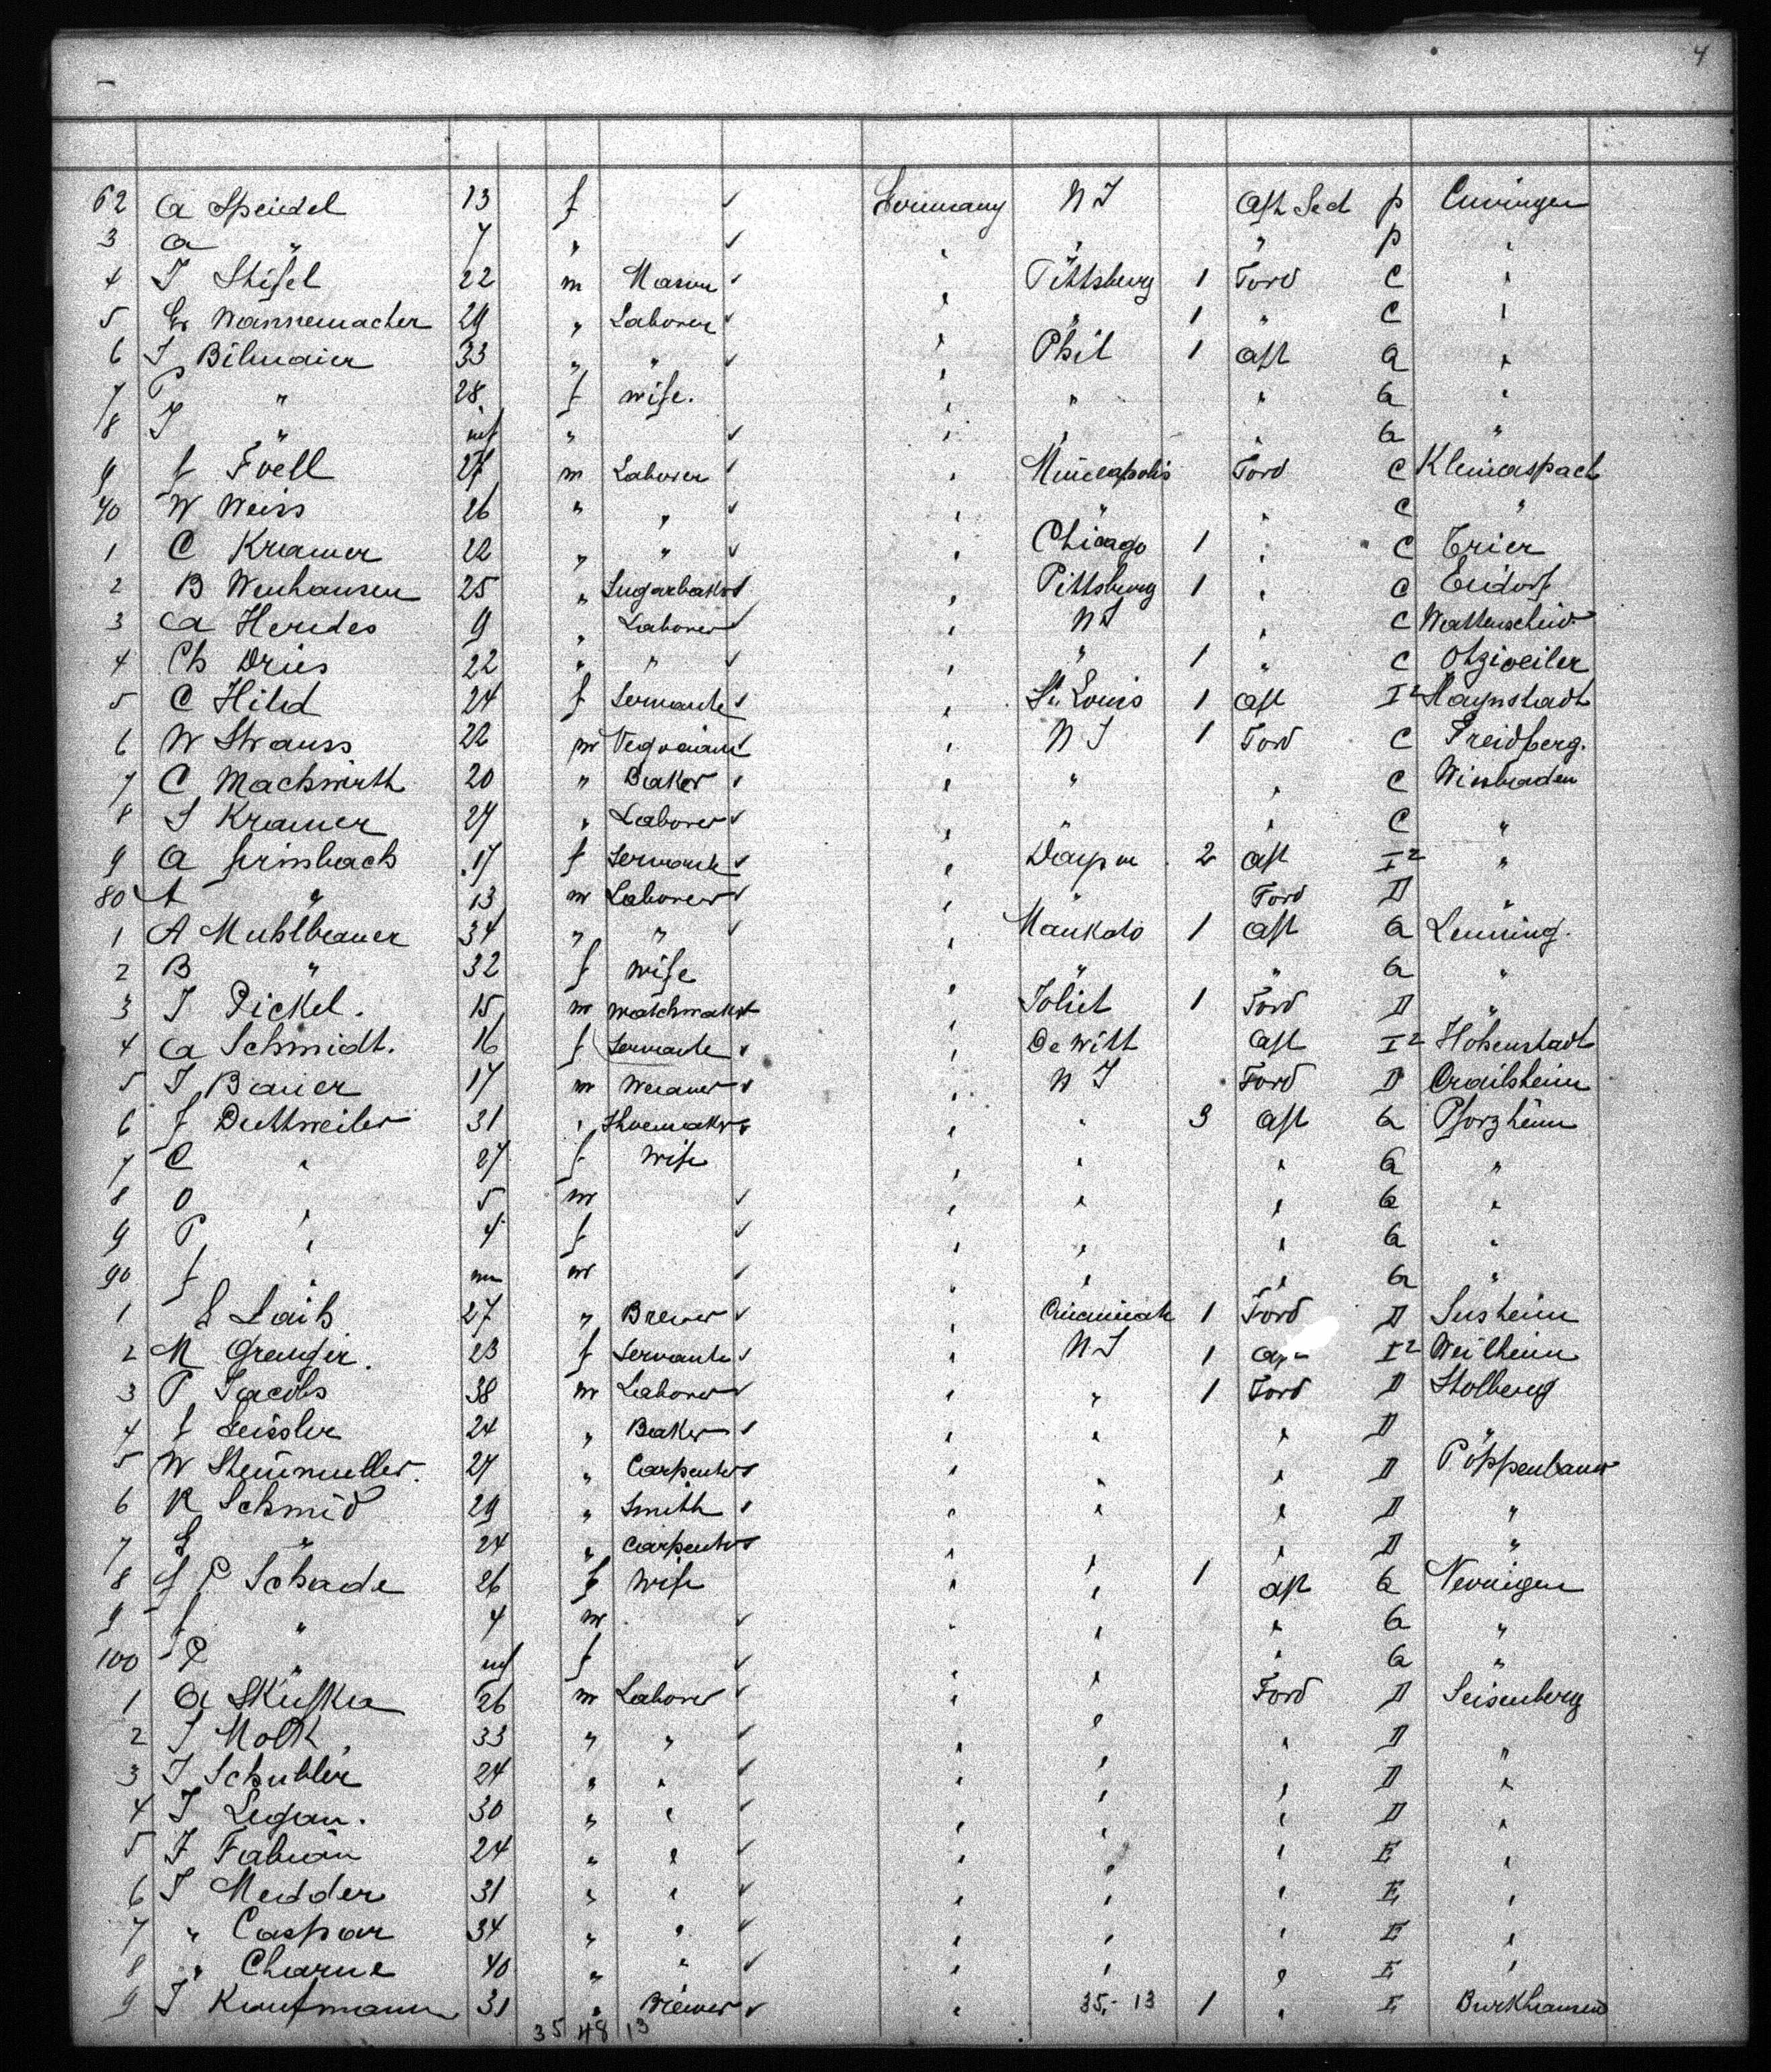 4
62 A Speidel 13 f ✓ Germany N Y Aft Sed p Eningen
3 A " 7 " ✓ " " " p "
4 J Stifel 22 m Mason ✓ " Pittsburg 1 Ford C "
5 G Wannemacher 29 " Laborer ✓ " " 1 " C "
6 J Bilmaier 33 " " ✓ " Phil 1 Aft G "
7 P " 28 f Wife. " " " G "
8 J " inf " ✓ " " " G "
9 f Foell 27 m Laborer ✓ " Mineapolis Ford C Kleinaspach
70 W Weiss 26 " " ✓ " " " C "
1 C Kramer 22 " " ✓ " Chicago 1 " C Trier
2 B Wenhausen 25 " Sugarbaker ✓ " Pittsburg 1 " C
3 A Herdes 9 " Laborer ✓ " N Y " C Wattenscheid
4 Ch Dries 22 " " ✓ " " 1 " C Otzweiler
5 C Hild 24 f Servante ✓ " St. Louis 1 Aft I2 Haynstadt
6 W Strauss 22 m ✓ " N Y 1 Ford C Freidberg.
7 C Machwirth 20 " Baker ✓ " " " C Wiesbaden
8 J Kramer 27 " Laborer ✓ " " " C "
9 A 17 f Servante ✓ " 2 Aft I2 "
80 A " 13 m Laborer ✓ " " Ford D "
1 A Muhlbauer 34 " " ✓ " Mankato 1 Aft G Lenning.
2 B " 32 f Wife " " " G "
3 J Pickel. 15 m Watchmaker ✓ " Joliet 1 Ford D "
4 A Schmidt. 16 f Servante ✓ " De Witt Aft I2 Hohenstadt
5 J Bauer 17 m Weaver ✓ " N Y Ford D Crailsheim
6 f Duttweiler 31 " Shoemaker ✓ " " 3 Aft G Pforzheim
7 C " 27 f Wife " " " G "
8 O " 5 m ✓ " " " G "
9 P " 4 f ✓ " " " G "
90 f " m ✓ " " " G "
1 L Laib 27 " Brewer ✓ " Cincinnati 1 Ford D Sinsheim
2 M 23 f Servante ✓ " N Y 1 I2 Weilheim
3 P Jacobs 38 m Laborer ✓ " " 1 Ford D Stolberg
4 f Geissler 24 " Baker ✓ " " " D "
5 W Steinmuller. 27 " Carpenter ✓ " " " D Poppenlauer
6 R Schmid 29 " Smith ✓ " " " D "
7 G " 24 " Carpenter ✓ " " " D "
8 P Schade 26 f Wife " " 1 Aft G
9 f " 4 m ✓ " " " G "
100 P " inf f ✓ " " " G "
1 A Skufka 26 m Laborer ✓ " " Ford D Seisenberg
2 J Molk 33 " " ✓ " " " D "
3 J Schubler 24 " " ✓ " " " D "
4 J Legan. 30 " " ✓ " " " D "
5 F Fabian 24 " " ✓ " " " E "
6 J Medder 31 " " ✓ " " " E "
7 " Caspar 34 " " ✓ " " " E "
8 " Charne 40 " " ✓ " " " E "
9 J Kaufmann 31 " Brewer ✓ " 35,-13 1 " E Burkhausen
35 48 13